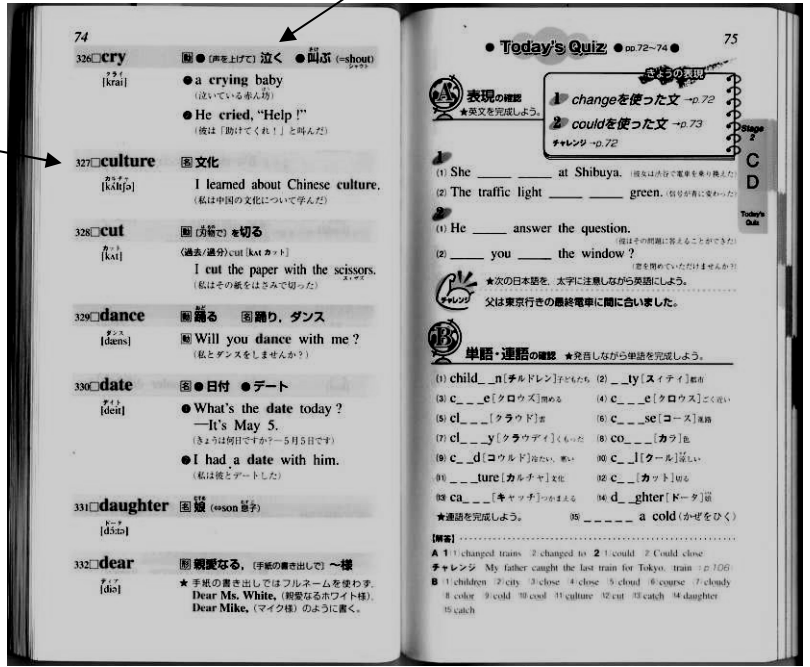 74
326□cry 動 ● [声を上げて] 泣く ● 叫ぶ (=shout)
クライ シャウト
[krai] ● a crying baby
(泣いている赤ん坊)
● He cried, “Help !”
(彼は「助けてくれ！」と叫んだ)
327□culture 名 文化
カルチャ
[kʌ́ltʃə] I learned about Chinese culture.
(私は中国の文化について学んだ)
328□cut 動 [刃物で] を切る
カット
[kʌt] 〈過去/過分〉cut [kʌt カット]
I cut the paper with the scissors.
(私はその紙をはさみで切った) スィザズ
329□dance 動 踊る 名 踊り，ダンス
ダンス
[dæns] 動 Will you dance with me ?
(私とダンスをしませんか？)
330□date 名 ● 日付 ● デート
デイト
[deit] ● What's the date today ?
—It's May 5.
(きょうは何日ですか？—５月５日です)
● I had a date with him.
(私は彼とデートした)
331□daughter 名 娘 (⇔son 息子)
ドータ
[dɔ́ːtə]
332□dear 形 親愛なる，[手紙の書き出しで] 〜様
ディア
[diə] ★ 手紙の書き出しではフルネームを使わず，
Dear Ms. White, (親愛なるホワイト様)，
Dear Mike, (マイク様) のように書く。
75
● Today's Quiz ● pp.72~74 ●
きょうの表現
1 changeを使った文 →p.72
2 couldを使った文 →p.73
チャレンジ →p.72
A 表現の確認
★英文を完成しよう。
Stage
2
C
D
Today's
Quiz
1
(1) She ____ ____ at Shibuya. (彼女は渋谷で電車を乗り換えた)
(2) The traffic light ____ ____ green. (信号が青に変わった)
2
(1) He ____ answer the question.
(彼はその問題に答えることができた)
(2) ____ you ____ the window ?
(窓を閉めていただけませんか？)
チャレンジ ★次の日本語を，太字に注意しながら英語にしよう。
父は東京行きの最終電車に間に合いました。
B 単語・連語の確認 ★発音しながら単語を完成しよう。
(1) child_ _n [チルドレン] 子どもたち (2) _ _ty [スィティ] 都市
(3) c_ _ _e [クロウズ] 閉める (4) c_ _ _e [クロウス] ごく近い
(5) cl_ _ _ [クラウド] 雲 (6) c_ _ _se [コース] 進路
(7) cl_ _ _y [クラウディ] くもった (8) co_ _ _ [カラ] 色
(9) c_ _d [コウルド] 冷たい，寒い (10) c_ _l [クール] 涼しい
(11) _ _ _ture [カルチャ] 文化 (12) c_ _ [カット] 切る
(13) ca_ _ _ [キャッチ] つかまえる (14) d_ _ghter [ドータ] 娘
★連語を完成しよう。 (15) _ _ _ _ _ a cold (かぜをひく)
【解答】
A 1 1 changed trains 2 changed to 2 1 could 2 Could close
チャレンジ My father caught the last train for Tokyo. train →p.106
B 1 children 2 city 3 close 4 close 5 cloud 6 course 7 cloudy
8 color 9 cold 10 cool 11 culture 12 cut 13 catch 14 daughter
15 catch